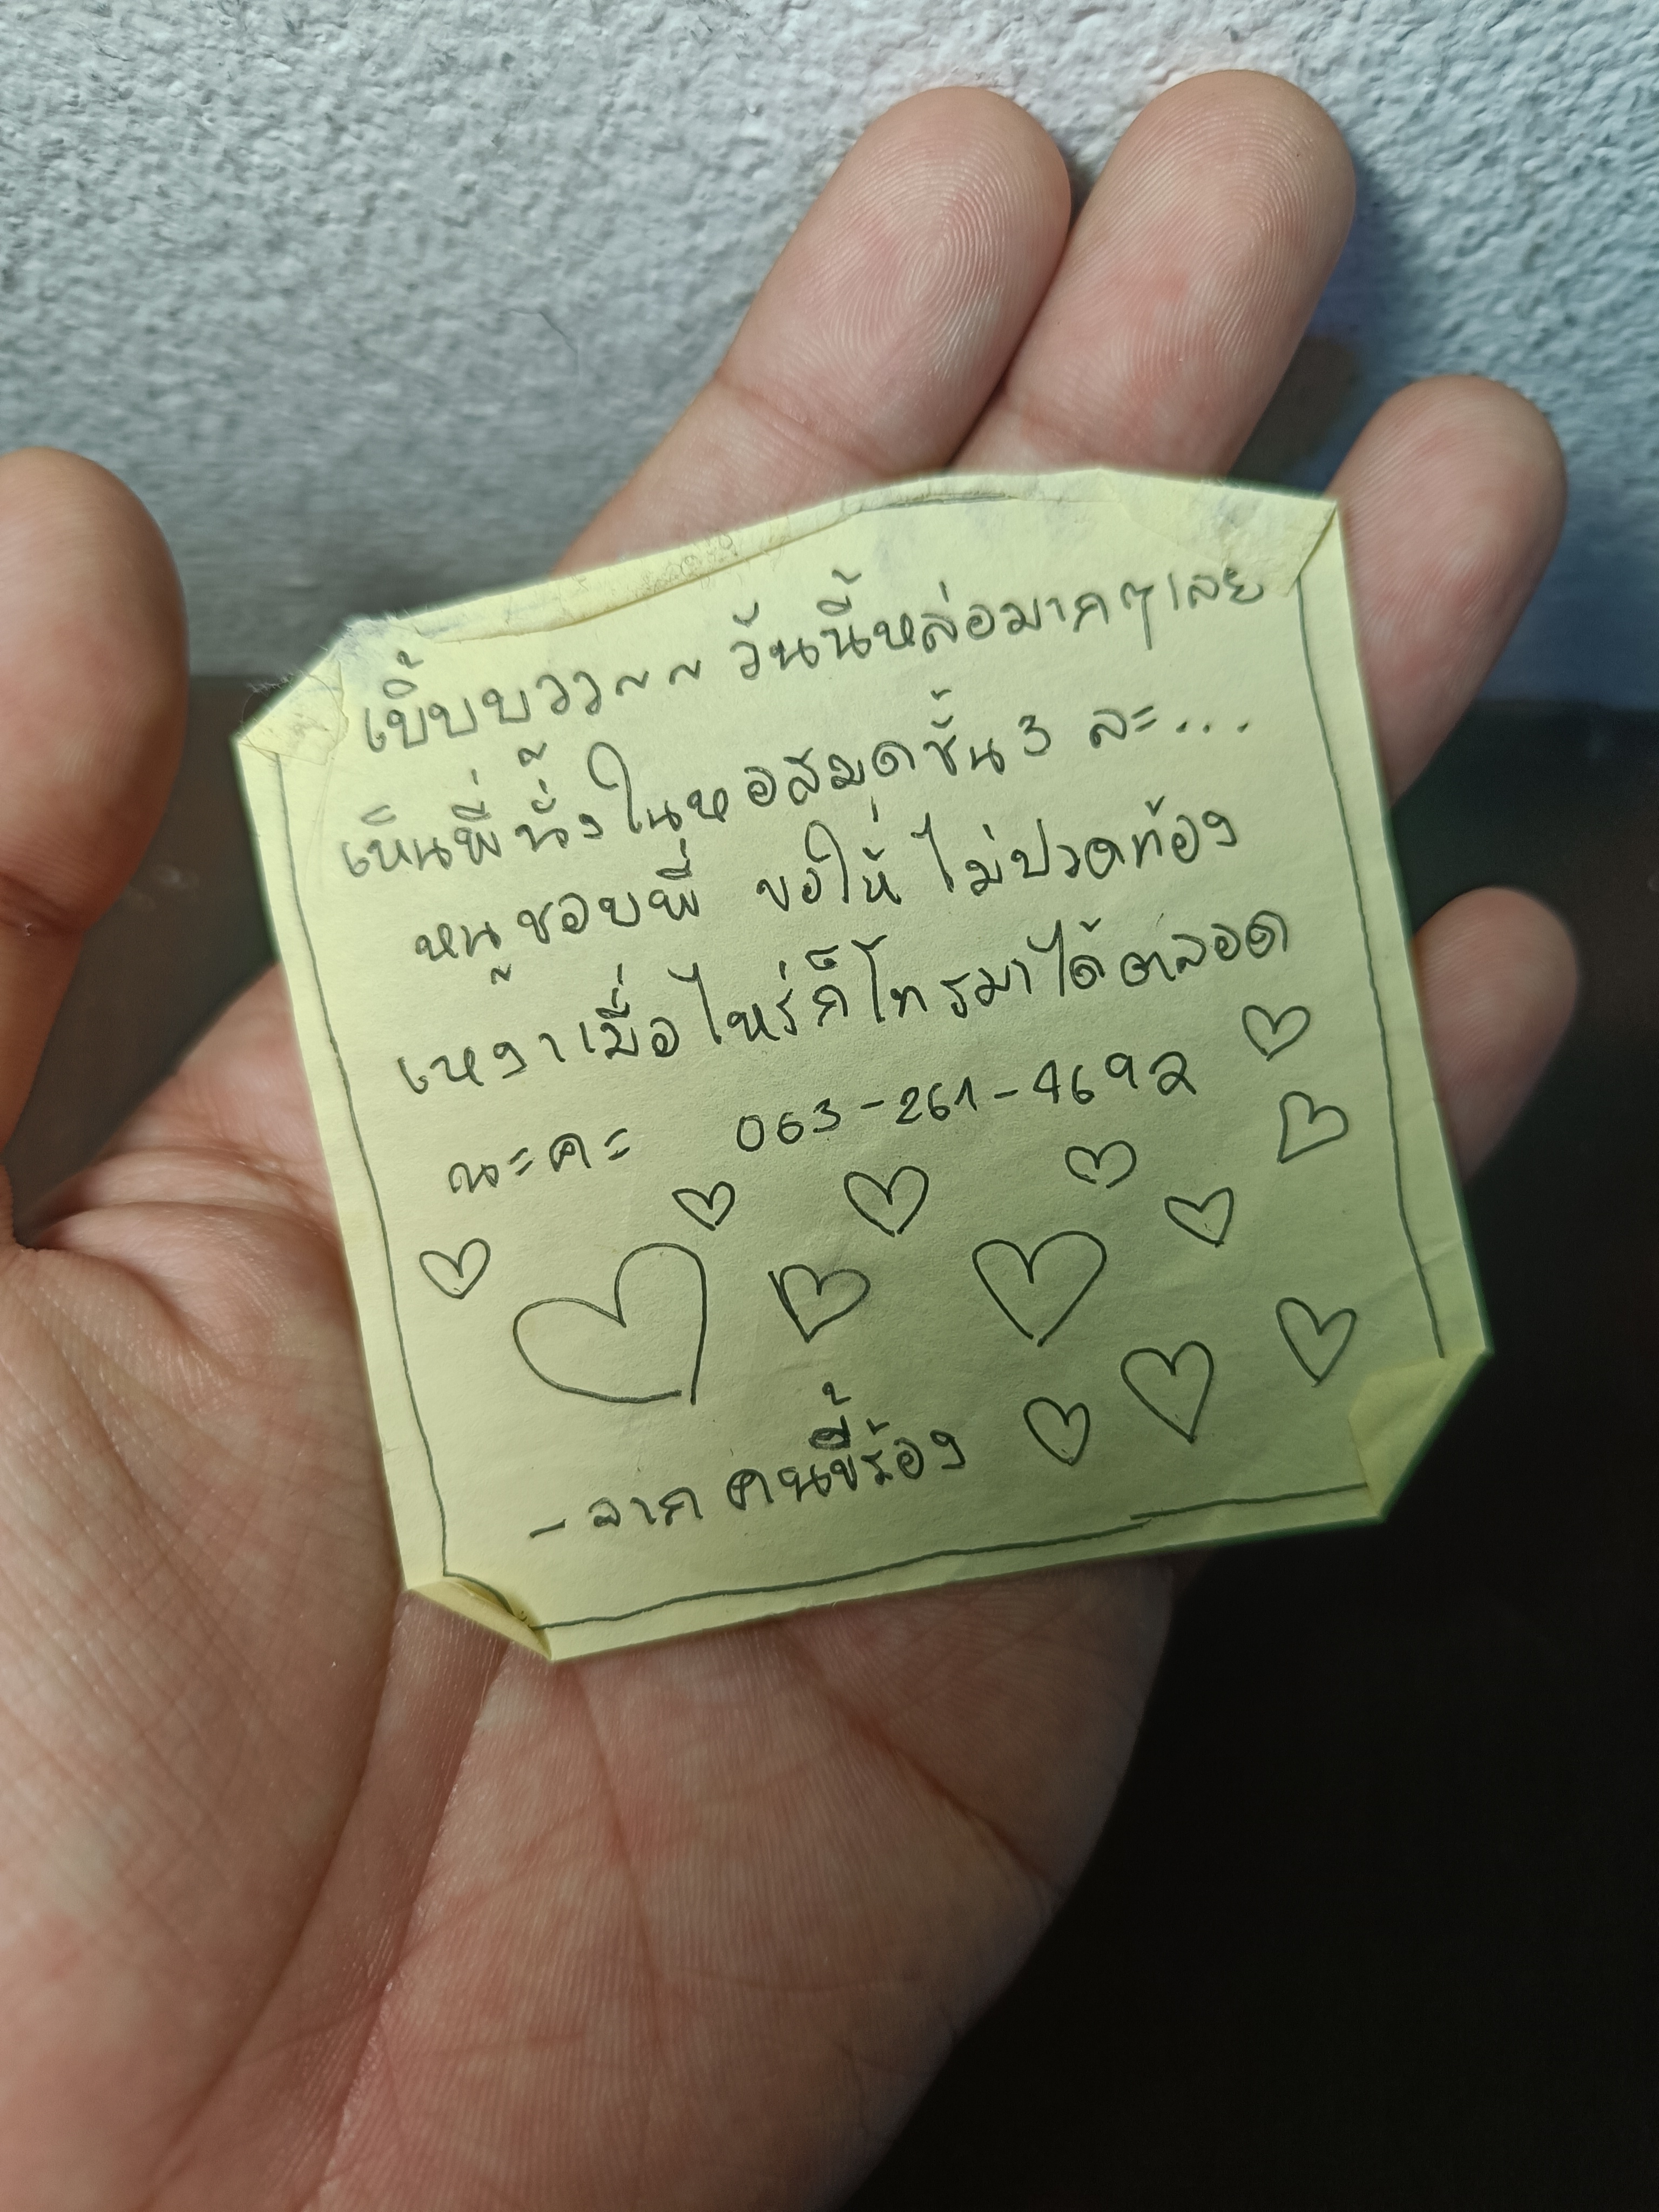 เบิ้บบวว~~ วันนี้หล่อมากๆเลย
เห็นพี่นั่งในหอสมุดชั้น 3 ละ...
หนูชอบพี่ ขอให้ไม่ปวดท้อง
เหงาเมื่อไหร่ก็โทรมาได้ตลอด
นะคะ 063-261-4692
-จากคนขี้ร้อง